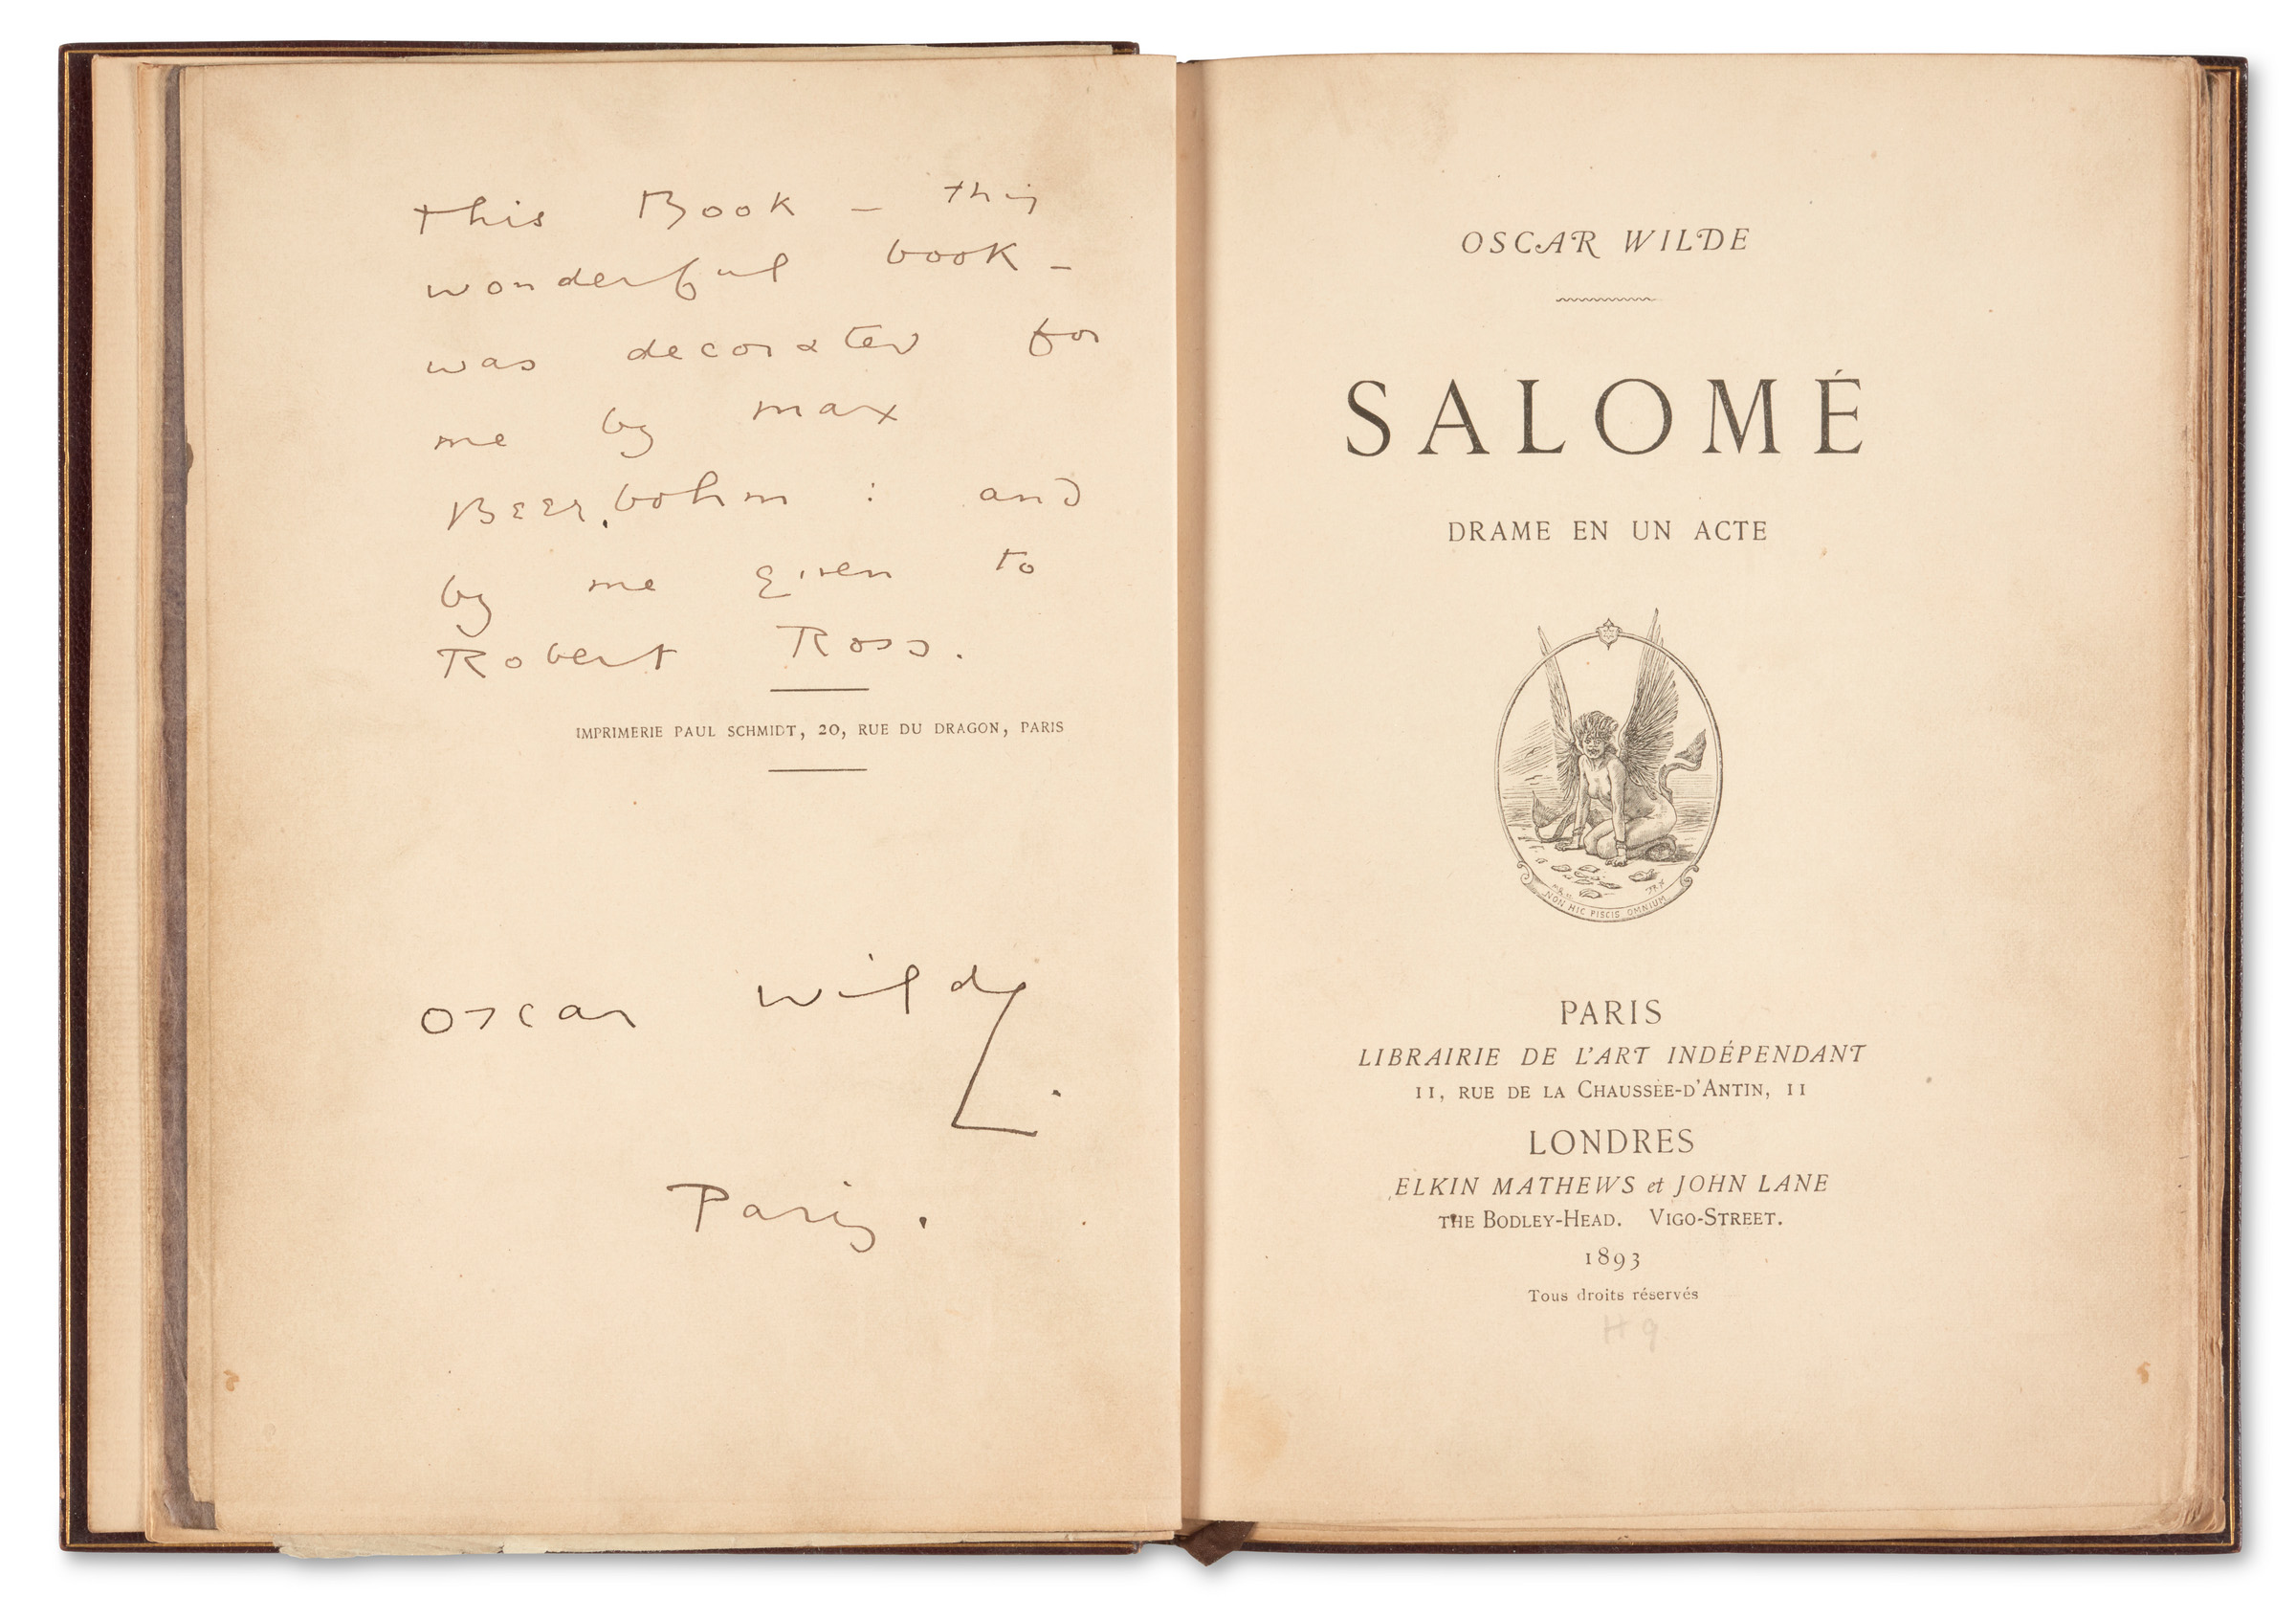 This Book – this
wonderful book –
was decorated for
me by Max
Beerbohm : and
by me given to
Robert Ross.
IMPRIMERIE PAUL SCHMIDT, 20, RUE DU DRAGON, PARIS
Oscar Wilde.
Paris.
OSCAR WILDE
SALOMÉ
DRAME EN UN ACTE
NON HIC PISCIS OMNIUM
PARIS
LIBRAIRIE DE L'ART INDÉPENDANT
11, RUE DE LA CHAUSSÉE-D'ANTIN, 11
LONDRES
ELKIN MATHEWS et JOHN LANE
THE BODLEY-HEAD. VIGO-STREET.
1893
Tous droits réservés